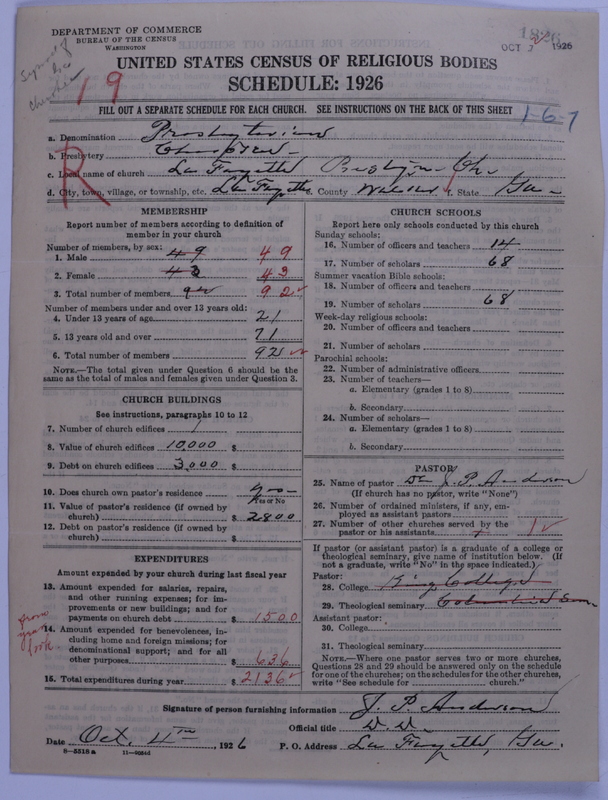 DEPARTMENT OF COMMERCE
BUREAU OF THE CENSUS
WASHINGTON
OCT 1926
UNITED STATES CENSUS OF RELIGIOUS BODIES
SCHEDULE: 1926
19
FILL OUT A SEPARATE SCHEDULE FOR EACH CHURCH. SEE INSTRUCTIONS ON THE BACK OF THIS SHEET
1-6-7
R
a. Denomination Presbyterian
b. Presbytery Cherokee
c. Local name of church La Fayette Presbyn. Ch.
d. City, town, village, or township, etc. La Fayette e. County Walker f. State Ga-
MEMBERSHIP
Report number of members according to definition of
member in your church
Number of members, by sex:
1. Male 49 49
2. Female 43 43
3. Total number of members 92 92
Number of members under and over 13 years old:
4. Under 13 years of age 21
5. 13 years old and over 71
6. Total number of members 92
NOTE.—The total given under Question 6 should be the
same as the total of males and females given under Question 3.
CHURCH BUILDINGS
See instructions, paragraphs 10 to 12
7. Number of church edifices 1
8. Value of church edifices 10,000 $
9. Debt on church edifices 3,000 $
10. Does church own pastor's residence yes
Yes or No
11. Value of pastor's residence (if owned by
church) $ 2800
12. Debt on pastor's residence (if owned by
church) $
EXPENDITURES
Amount expended by your church during last fiscal year
13. Amount expended for salaries, repairs,
and other running expenses; for im-
provements or new buildings; and for
payments on church debt $ 1500
from year book
14. Amount expended for benevolences, in-
cluding home and foreign missions; for
denominational support; and for all
other purposes $ 636
15. Total expenditures during year $ 2136
CHURCH SCHOOLS
Report here only schools conducted by this church
Sunday schools:
16. Number of officers and teachers 14
17. Number of scholars 68
Summer vacation Bible schools:
18. Number of officers and teachers
19. Number of scholars 68
Week-day religious schools:
20. Number of officers and teachers
21. Number of scholars
Parochial schools:
22. Number of administrative officers
23. Number of teachers—
a. Elementary (grades 1 to 8)
b. Secondary
24. Number of scholars—
a. Elementary (grades 1 to 8)
b. Secondary
PASTOR
25. Name of pastor J. P. Anderson
(If church has no pastor, write "None")
26. Number of ordained ministers, if any, em-
ployed as assistant pastors
27. Number of other churches served by the
pastor or his assistants 1
If pastor (or assistant pastor) is a graduate of a college or
theological seminary, give name of institution below. (If
not a graduate, write "No" in the space indicated.)
Pastor:
28. College King College
29. Theological seminary Columbia Sem
Assistant pastor:
30. College
31. Theological seminary
NOTE.—Where one pastor serves two or more churches,
Questions 28 and 29 should be answered only on the schedule
for one of the churches; on the schedules for the other churches,
write "See schedule for church."
Signature of person furnishing information J. P. Anderson
Official title D. D.
Date Oct. 4th, 1926 P. O. Address La Fayette, Ga.
8—5518 a